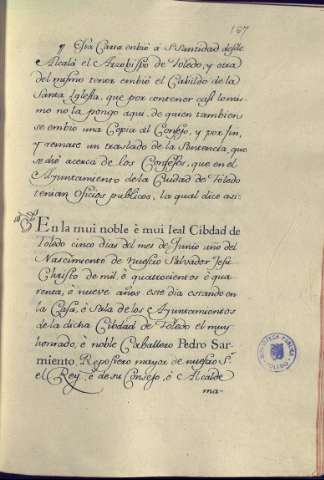 167
¶ Esta Carta embió á Su Santidad desde
Alcalá el Arzobispo de Toledo, y otra
del mismo tenor embió el Cabildo de la
Santa Iglesia, que por contener casi lo mis-
mo no la pongo aqui, de quien tambien
se embio una Copia al Consejo, y por fin,
y remate un traslado de la Sentencia, que
se dió acerca de los Confessos, que en el
Ayuntamiento de la Ciudad de Toledo
tenian Oficios publicos, la qual dice asi:
En la mui noble è mui leal Cibdad de
Toledo cinco dias del mes de Junio año del
Nascimiento de nuestro Salvador Jesu
Christo de mil, è quatrocientos è qua-
renta, è nueve años este dia estando en
la Casa, è Sala de los Ayuntamientos
de la dicha Cibdad de Toledo el muy
honrado, è noble Caballero Pedro Sar-
miento, Repostero mayor de nuestro S.r
el Rey, è de su Consejo, è Alcalde
ma-
BIBLIOTECA PUBLICA
TOLEDO